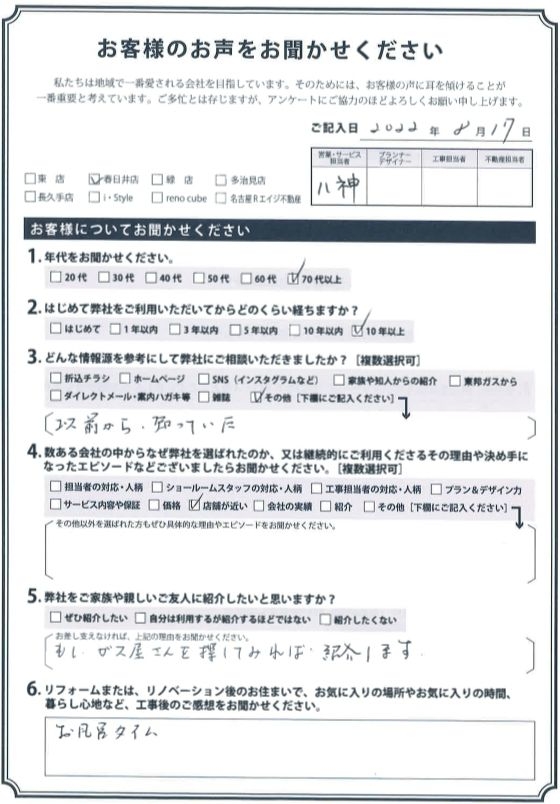 お客様のお声をお聞かせください
私たちは地域で一番愛される会社を目指しています。そのためには、お客様の声に耳を傾けることが
一番重要と考えています。ご多忙とは存じますが、アンケートにご協力のほどよろしくお願い申し上げます。
ご記入日 2022 年 8 月 17 日
営業・サービス担当者 プランナーデザイナー 工事担当者 不動産担当者
八神
東 店 春日井店 緑 店 多治見店
長久手店 i・Style reno cube 名古屋Rエイジ不動産
お客様についてお聞かせください
1. 年代をお聞かせください。
20代 30代 40代 50代 60代 70代以上
2. はじめて弊社をご利用いただいてからどのくらい経ちますか？
はじめて 1年以内 3年以内 5年以内 10年以内 10年以上
3. どんな情報源を参考にして弊社にご相談いただきましたか？［複数選択可］
折込チラシ ホームページ SNS（インスタグラムなど） 家族や知人からの紹介 東邦ガスから
ダイレクトメール・案内ハガキ等 雑誌 その他［下欄にご記入ください］
以前から、知っていた
4. 数ある会社の中からなぜ弊社を選ばれたのか、又は継続的にご利用くださるその理由や決め手に
なったエピソードなどございましたらお聞かせください。［複数選択可］
担当者の対応・人柄 ショールームスタッフの対応・人柄 工事担当者の対応・人柄 プラン&デザイン力
サービス内容や保証 価格 店舗が近い 会社の実績 紹介 その他［下欄にご記入ください］
その他以外を選ばれた方もぜひ具体的な理由やエピソードをお聞かせください。
5. 弊社をご家族や親しいご友人に紹介したいと思いますか？
ぜひ紹介したい 自分は利用するが紹介するほどではない 紹介したくない
お差し支えなければ、上記の理由をお聞かせください。
もし ガス屋さんを探してみれば 紹介します.
6. リフォームまたは、リノベーション後のお住まいで、お気に入りの場所やお気に入りの時間、
暮らし心地など、工事後のご感想をお聞かせください。
お風呂タイム